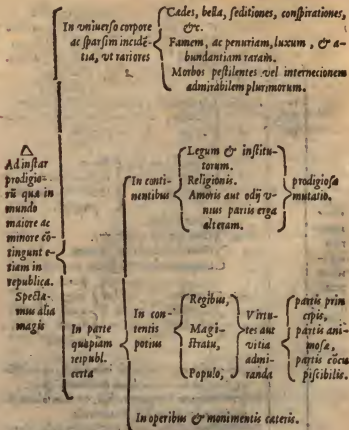 △
Ad instar
prodigio-
rū quæ in
mundo
maiore ac
minore cō-
tingunt e-
tiam in
republica.
Specta-
mus alia
magis
In vniuerso corpore
ac sparsim incidē-
tia, vt rariores
Cædes, bella, seditiones, conspirationes,
&c.
Famem, ac penuriam, luxum, & a-
bundantiam raram.
Morbos pestilentes vel internecionem
admirabilem plurimorum.
In parte
quapiam
reipubl.
certa
In conti-
nentibus
Legum & institu-
torum.
Religionis.
Amoris aut odij v-
nius partis erga
alteram.
prodigiosa
mutatio.
In con-
tentis
potius
Regibus,
Magi-
stratu,
Populo,
Virtu-
tes aut
vitia
admi-
randa
partis prin
cipis,
partis ani-
mosæ,
partis cōcu
piscibilis.
In operibus & monimentis cæteris.